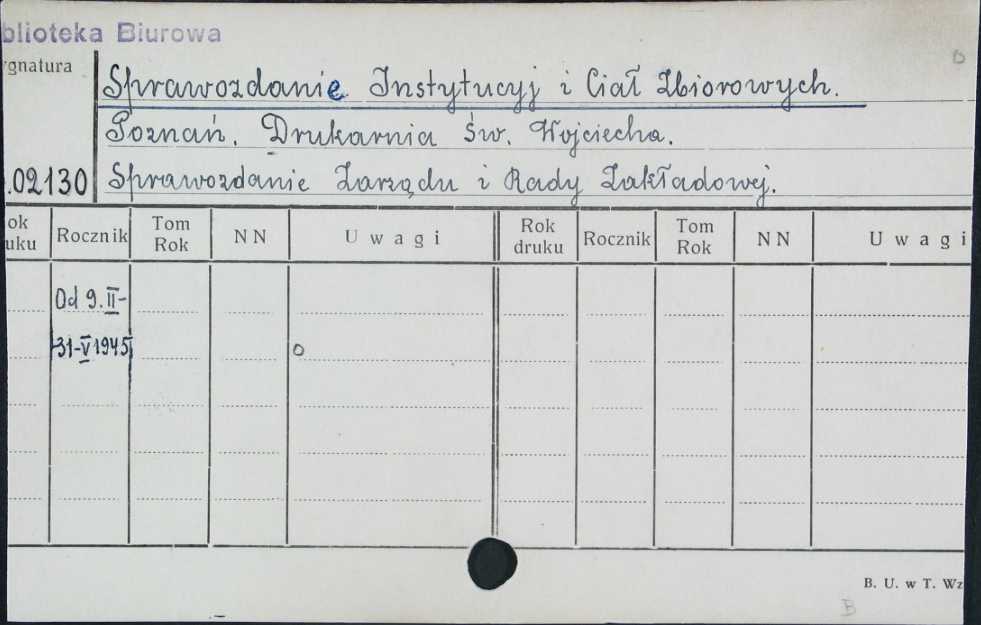 blioteka Biurowa
ygnatura
Sprawozdanie Instytucyj i Ciał Zbiorowych.
Poznań. Drukarnia Św. Wojciecha.
.02130 Sprawozdanie Zarządu i Rady Zakładowej.
ok uku Rocznik Tom Rok NN Uwagi Rok druku Rocznik Tom Rok NN Uwagi
Od 9.II-
31-V 1945 o
B. U. w T. Wz
B